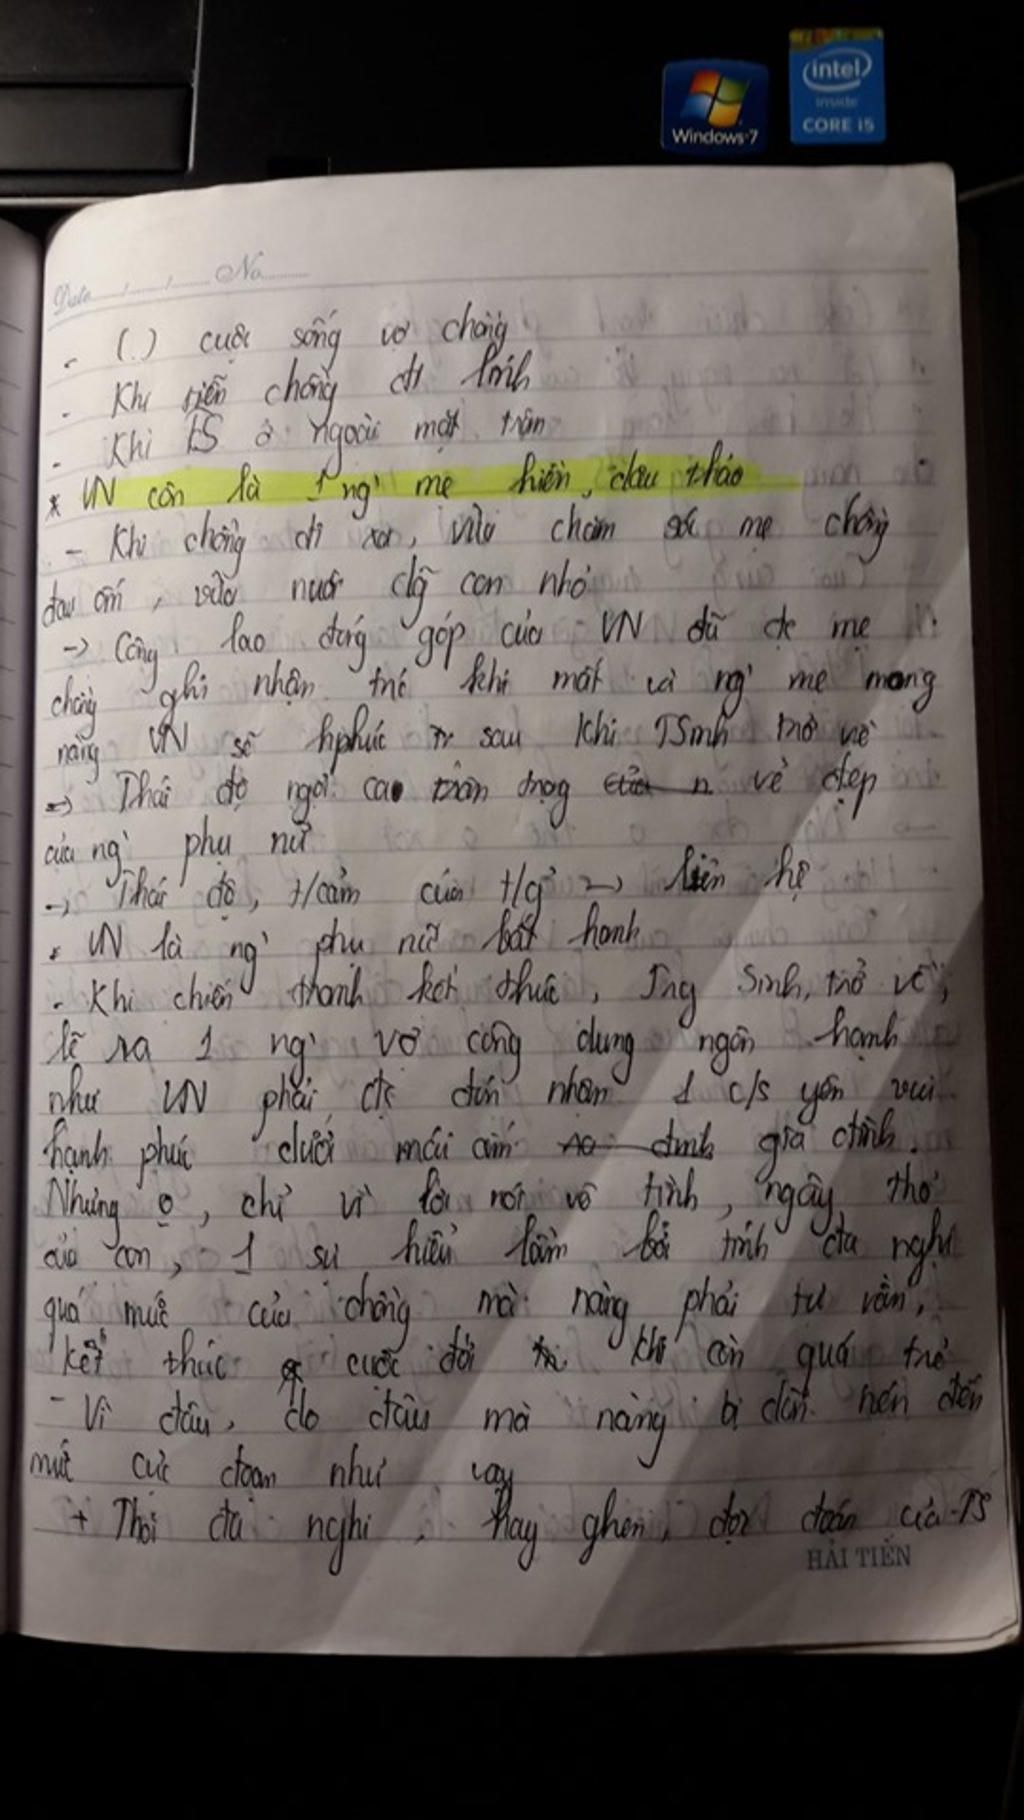 Windows 7
intel
inside
CORE i5
Date....../....../...... No..........
- (.) cuộc sống vợ chồng
- Khi tiễn chồng đi lính
- Khi TS ở ngoài mặt trận
* VN còn là 1 ng` mẹ hiền, dâu thảo
- Khi chồng đi xa, vừa chăm sóc mẹ chồng
đau ốm, vừa nuôi dỡ con nhỏ
-> Công lao đóng góp của VN đã đc mẹ
chồng ghi nhận trc khi mất và ng` mẹ mong
nàng VN sẽ hphúc sau khi TSinh trở về
=> Thái độ ngợi ca trân trọng vẻ đẹp
của ng` phụ nữ
-> Thái độ, t/cảm của t/g² -> liên hệ
* VN là ng` phụ nữ bất hạnh
- Khi chiến tranh kết thúc, Trg Sinh, trở về,
lẽ ra 1 ng` vợ công dung ngôn hạnh
như VN phải đc đón nhận 1 c/s yên vui
hạnh phúc dưới mái ấm gia đình.
Nhưng o, chỉ vì lời nói vô tình, ngây thơ
của con, 1 sự hiểu lầm bởi tính đa nghi
quá mức của chồng mà nàng phải tự vẫn,
kết thúc cuộc đời khi còn quá trẻ
- Vì đâu, do đâu mà nàng bị dồn nén đến
mức cực đoan như vậy
+ Thói đa nghi, hay ghen, độc đoán của TS
HẢI TIẾN